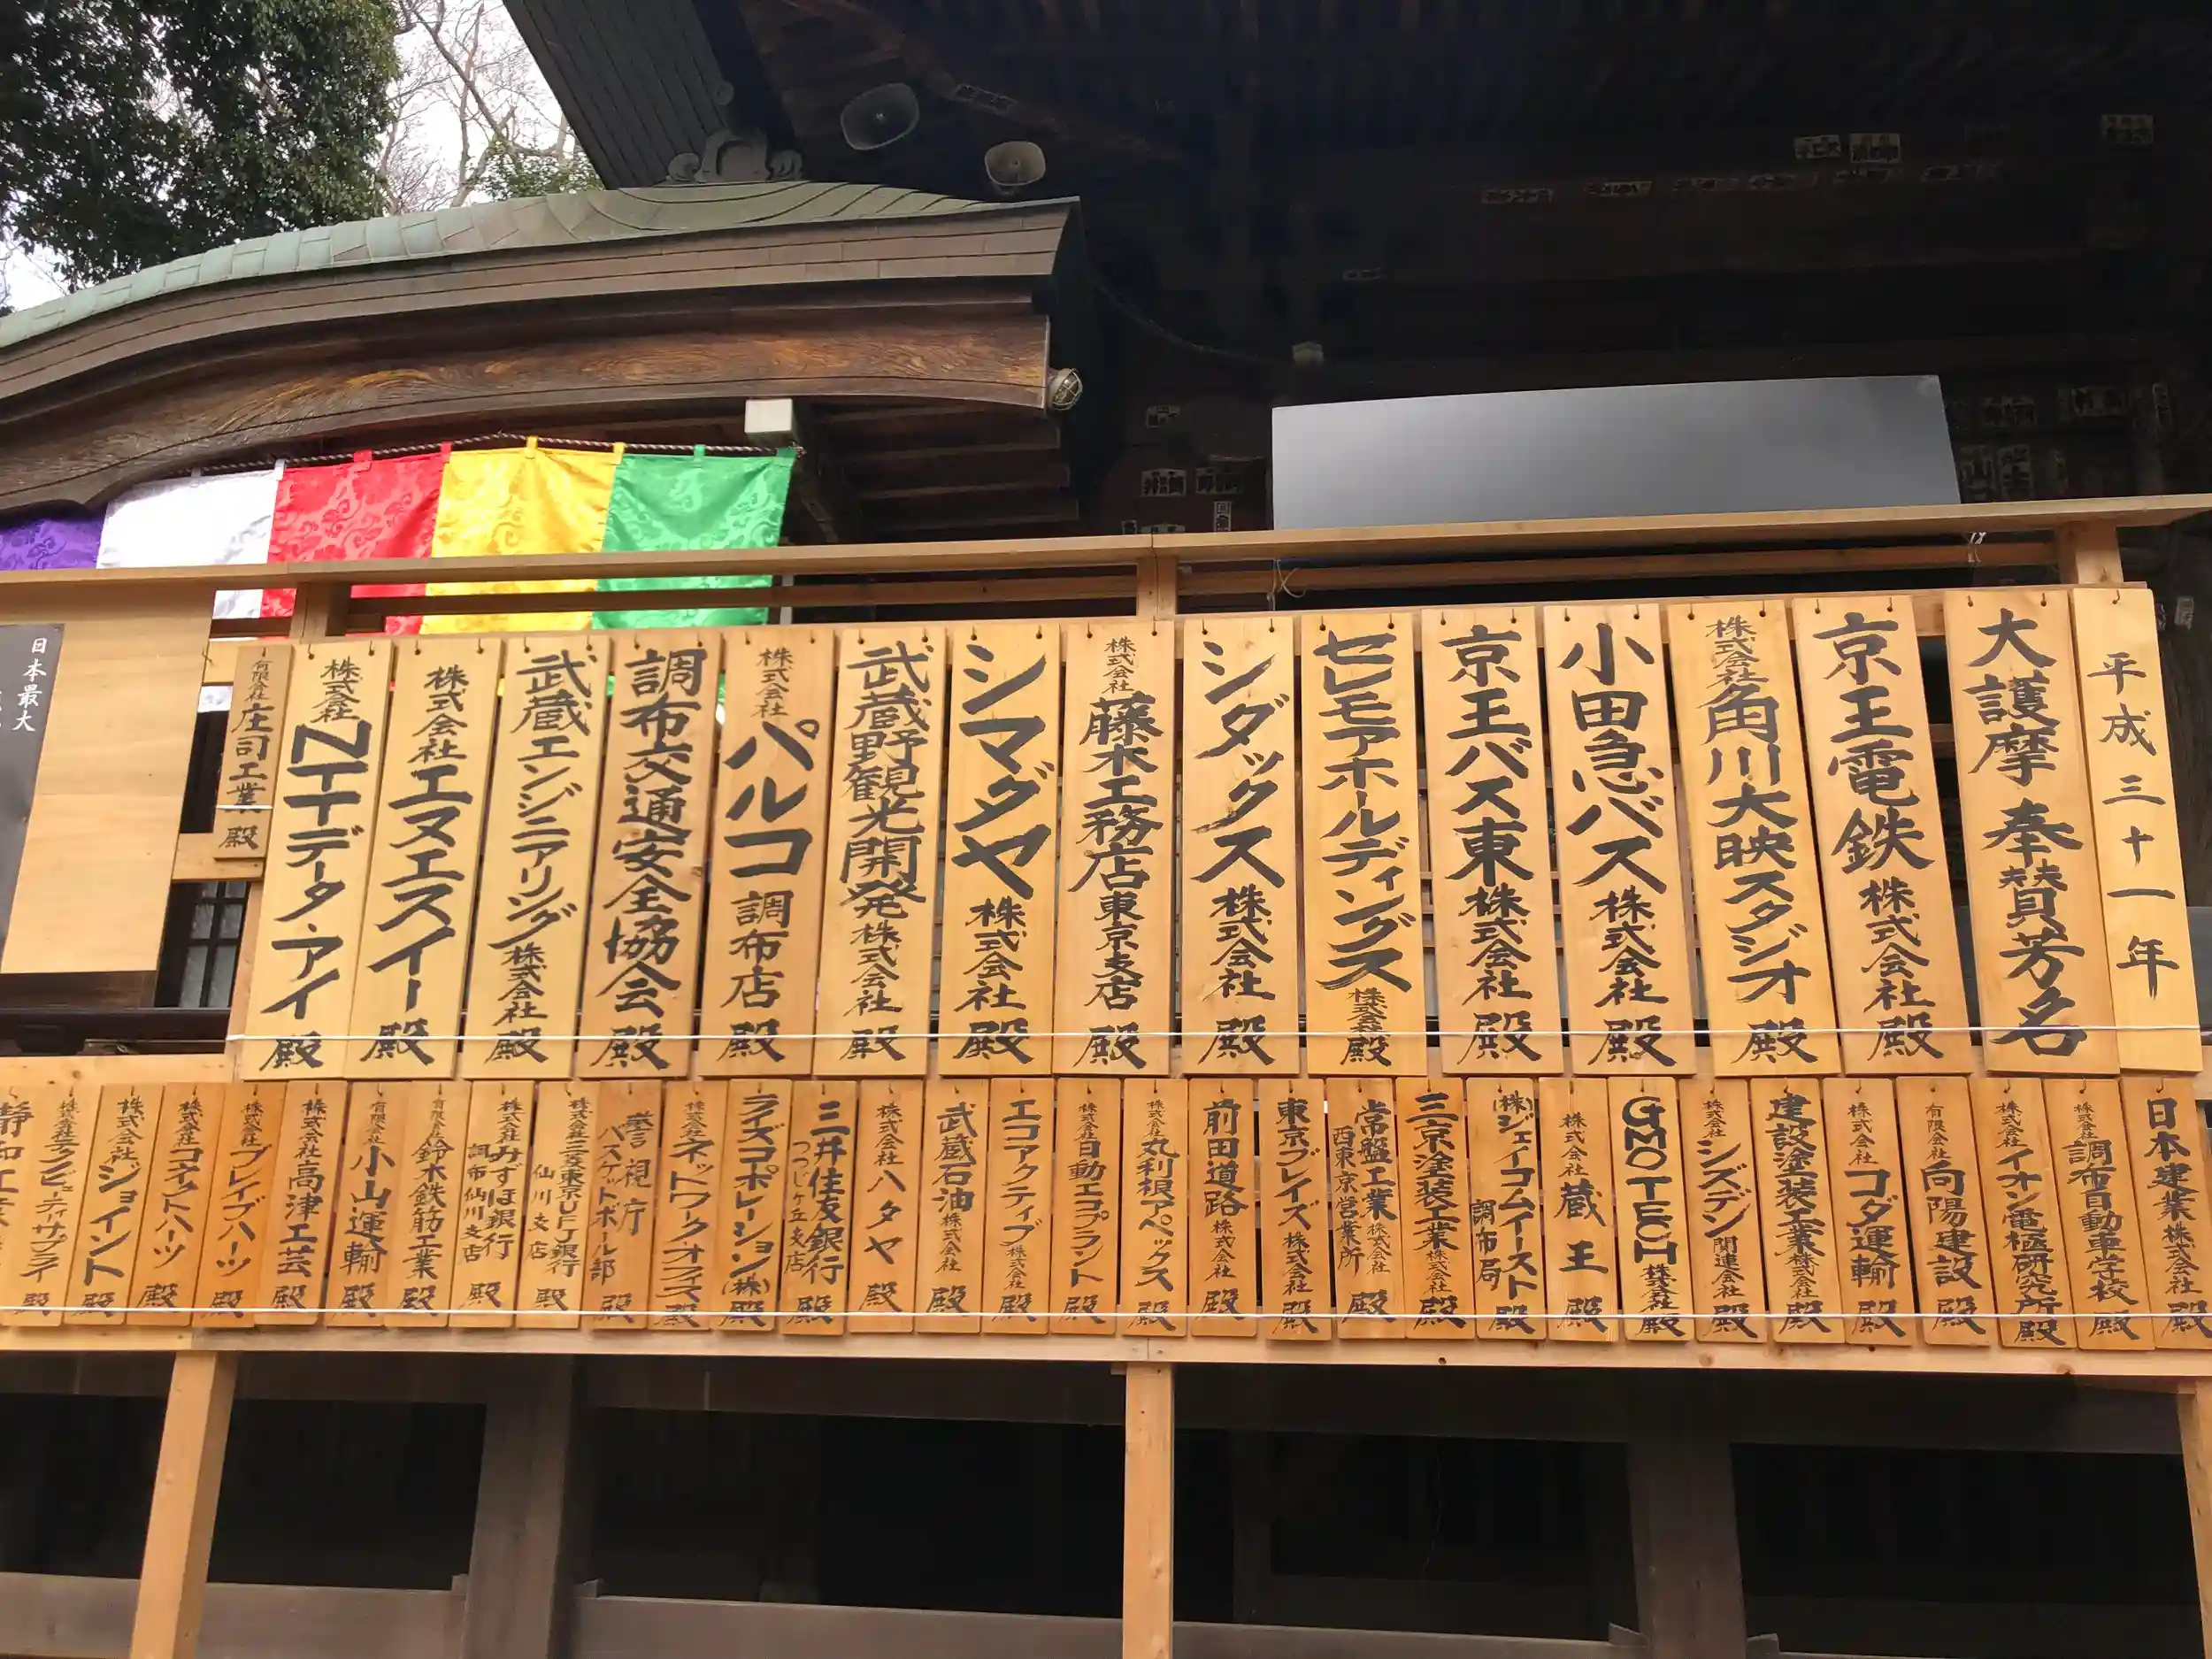 平成三十一年
大護摩奉賛芳名
京王電鉄株式会社殿
株式会社角川大映スタジオ殿
小田急バス株式会社殿
京王バス東株式会社殿
セレモアホールディングス株式会社殿
シダックス株式会社殿
株式会社藤木工務店東京支店殿
シマダヤ株式会社殿
武蔵野観光開発株式会社殿
株式会社パルコ調布店殿
調布交通安全協会殿
武蔵エンジニアリング株式会社殿
株式会社エヌエスイー殿
株式会社NTTデータ・アイ殿
有限会社庄司工業殿
日本最大
日本建業株式会社殿
株式会社調布自動車学校殿
株式会社イオン電極研究所殿
有限会社向陽建設殿
株式会社コダ運輸殿
建設塗装工業株式会社殿
株式会社シズデン関連会社殿
GMO TECH株式会社殿
株式会社蔵王殿
(株)ジェイコムイースト調布局殿
三京塗装工業株式会社殿
常盤工業株式会社西東京営業所殿
東京ブレイズ株式会社殿
前田道路株式会社殿
株式会社丸利根アペックス殿
株式会社日動エコプラント殿
エコアクティブ株式会社殿
武蔵石油株式会社殿
株式会社ハタヤ殿
三井住友銀行つつじヶ丘支店殿
ライズコーポレーション(株)殿
株式会社ネットワークオフィス殿
警視庁バスケットボール部殿
株式会社三菱東京UFJ銀行仙川支店殿
株式会社みずほ銀行調布仙川支店殿
有限会社鈴木鉄筋工業殿
有限会社小山運輸殿
株式会社高津工芸殿
株式会社ブレイブハーツ殿
株式会社コネクトハーツ殿
株式会社ジョイント殿